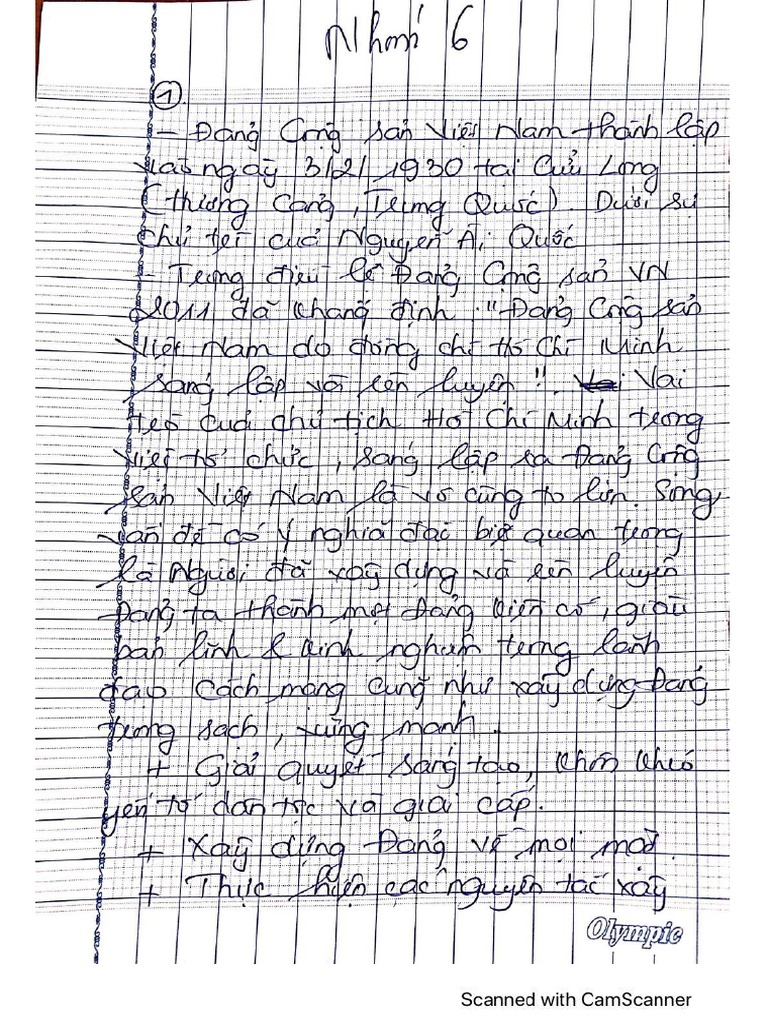 Nhóm 6
①
- Đảng Cộng sản Việt Nam thành lập
vào ngày 3/2/1930 tại Cửu Long
(Hương Cảng, Trung Quốc). Dưới sự
chủ trì của Nguyễn Ái Quốc
- Trong điều lệ Đảng Cộng sản VN
2011 đã khẳng định: "Đảng Cộng sản
Việt Nam do đồng chí Hồ Chí Minh
sáng lập và rèn luyện". Vai
trò của chủ tịch Hồ Chí Minh trong
việc tổ chức, sáng lập ra Đảng Cộng
sản Việt Nam là vô cùng to lớn. Song,
vấn đề có ý nghĩa đặc biệt quan trọng
là Người đã xây dựng và rèn luyện
Đảng ta thành một Đảng kiên cố, giàu
bản lĩnh & kinh nghiệm trong lãnh
đạo Cách mạng cũng như xây dựng Đảng
trong sạch, vững mạnh.
+ Giải quyết sáng tạo, khôn khéo
yếu tố dân tộc và giai cấp.
+ Xây dựng Đảng về mọi mặt.
+ Thực hiện các nguyên tắc xây
Olympic
Scanned with CamScanner